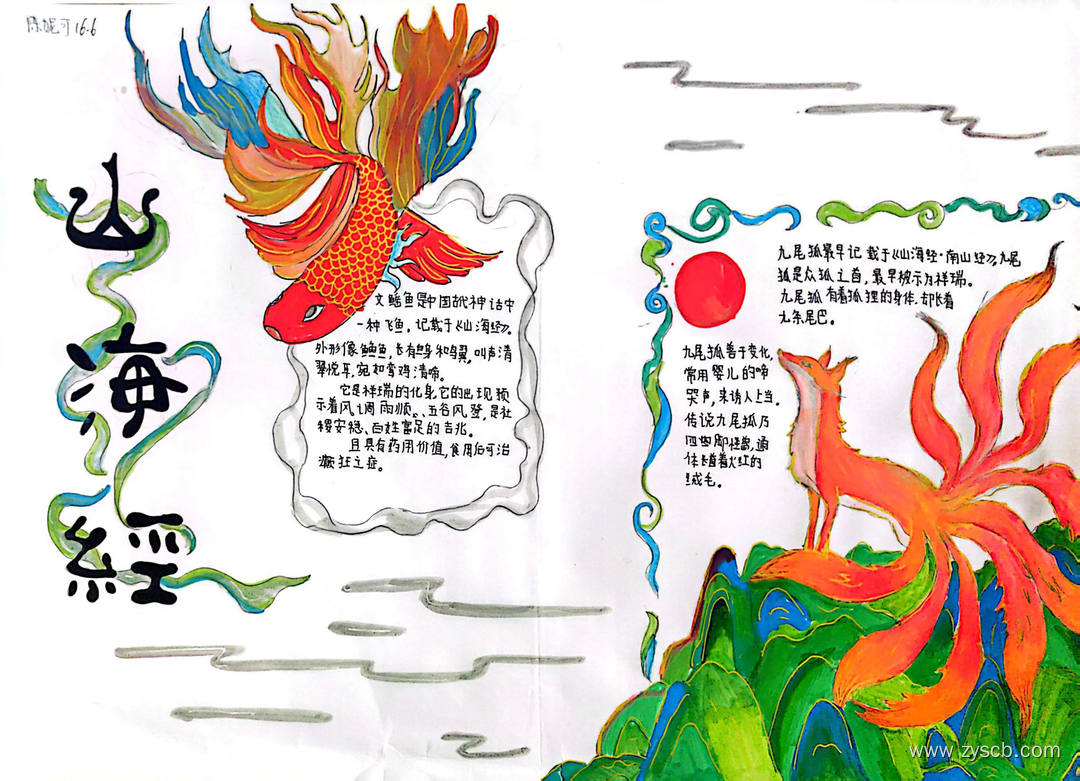 陈妮可 16.6
山海經
文鳐鱼是中国古代神话中
一种飞鱼，记载于《山海经》。
外形像鲤鱼，长有鸟身和鸟翼，叫声清
翠悦耳，宛如鸾鸡清啼。
它是祥瑞的化身它的出现预
示着风调雨顺、五谷风登，是社
稷安稳、百姓富足的吉兆。
且具有药用价值，食用后可治
癫狂之症。
九尾狐最早记载于《山海经·南山经》，九尾
狐是众狐之首，最早被示为祥瑞。
九尾狐有着狐狸的身体却长着
九条尾巴。
九尾狐善于变化，
常用婴儿的啼
哭声，来诱人上当。
传说九尾狐乃
四脚怪兽，通
体长着火红的
绒毛。
www.zyscb.com